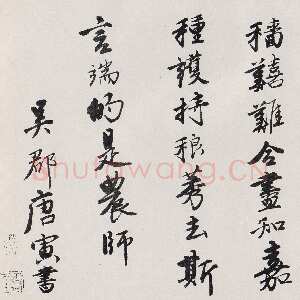 穡囏難今盡知嘉
種護持稂莠去斯
言端的是農師
吳郡唐寅書
shufawang.CN